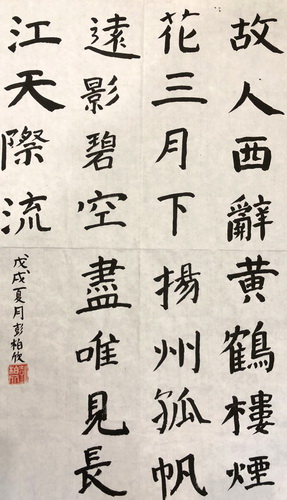 故人西辭黄鶴樓煙
花三月下揚州孤帆
遠影碧空盡唯見長
江天際流
戊戌夏月彭柏欣